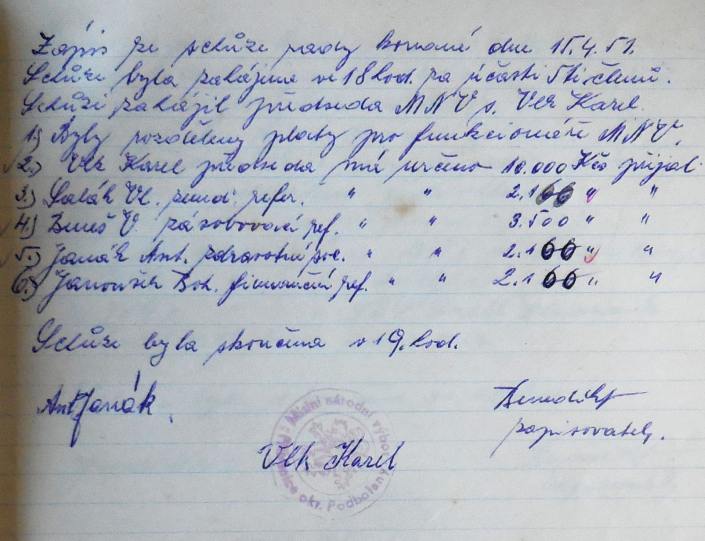 Zápis ze schůze rady konané dne 15.4.51.
Schůze byla zahájena v 18 hod. za účasti 5ti členů.
Schůzi zahájil předseda MNV s. Vlk Karel.
1) Byly rozděleny platy pro funkcionáře MNV.
2.) Vlk Karel předseda má určeno 10.000 Kčs přijal
3.) Salák Vl. zeměd. refer. " " 2.100 " "
4.) Beneš V. zásobovací ref. " " 3.500 " "
5.) Janák Ant. zdravotní soc. " " 2.100 " "
6.) Janoušek Boh. finanční ref. " " 2.100 " "
Schůze byla skončena v 19. hod.
Ant Janák.
Benedikt
zapisovatel.
Vlk Karel
Místní národní výbor
okr. Podbořany